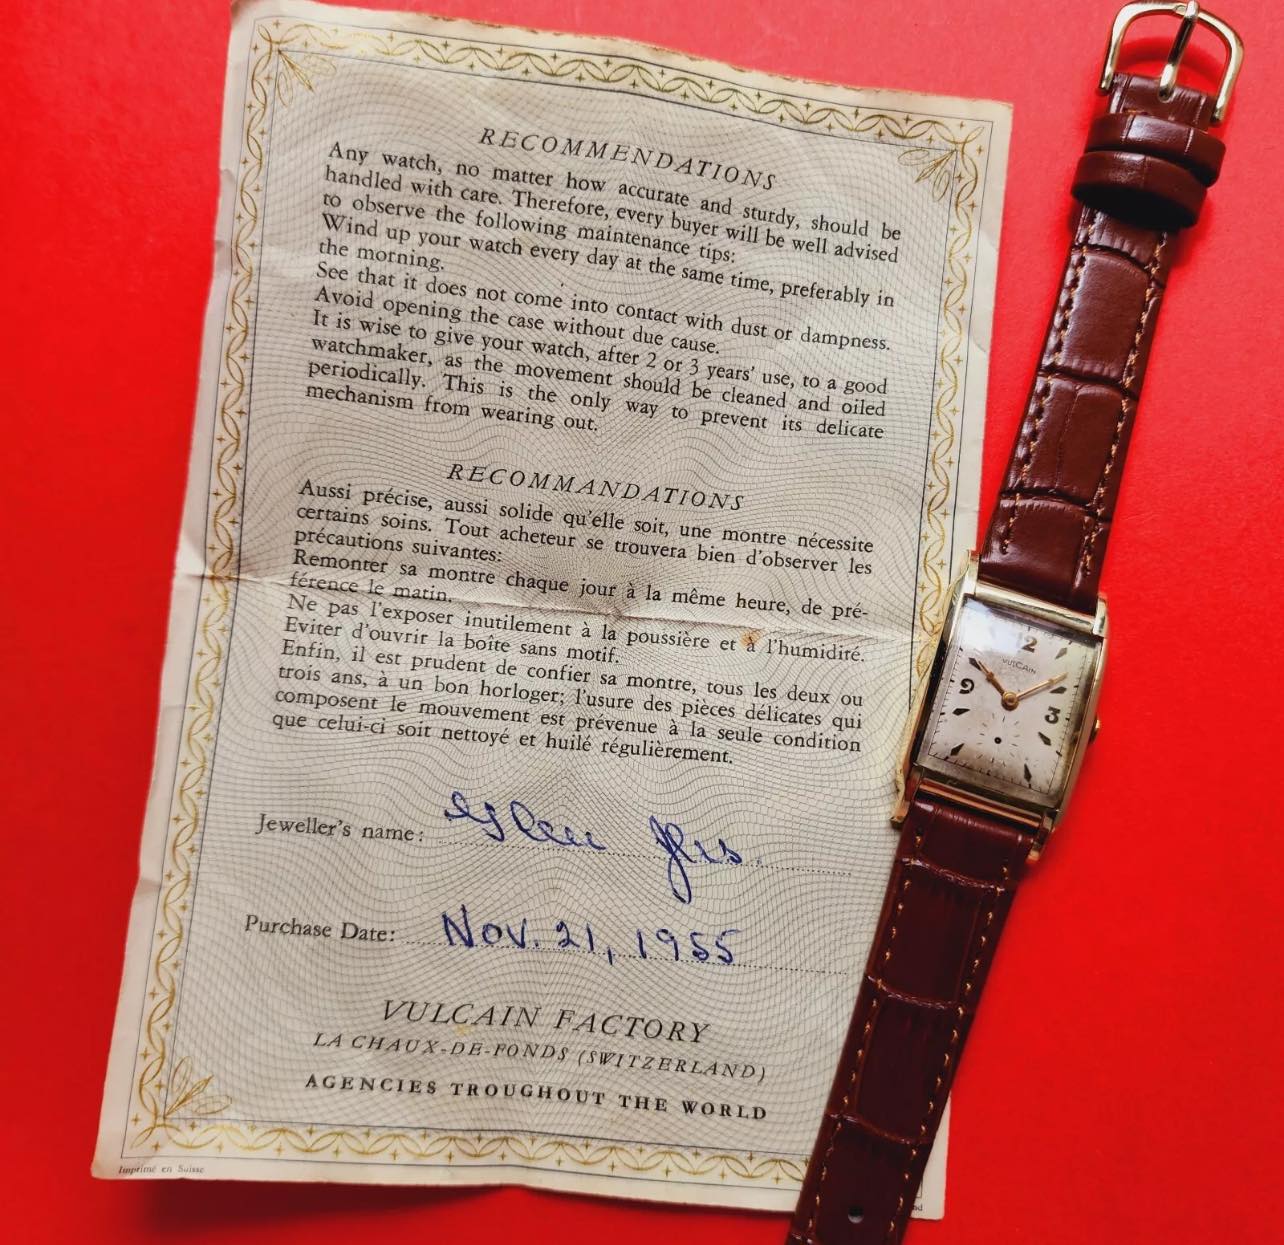 RECOMMENDATIONS
Any watch, no matter how accurate and sturdy, should be
handled with care. Therefore, every buyer will be well advised
to observe the following maintenance tips:
Wind up your watch every day at the same time, preferably in
the morning.
See that it does not come into contact with dust or dampness.
Avoid opening the case without due cause.
It is wise to give your watch, after 2 or 3 years' use, to a good
watchmaker, as the movement should be cleaned and oiled
periodically. This is the only way to prevent its delicate
mechanism from wearing out.
RECOMMANDATIONS
Aussi précise, aussi solide qu'elle soit, une montre nécessite
certains soins. Tout acheteur se trouvera bien d'observer les
précautions suivantes:
Remonter sa montre chaque jour à la même heure, de pré-
férence le matin.
Ne pas l'exposer inutilement à la poussière et à l'humidité.
Eviter d'ouvrir la boîte sans motif.
Enfin, il est prudent de confier sa montre, tous les deux ou
trois ans, à un bon horloger; l'usure des pièces délicates qui
composent le mouvement est prévenue à la seule condition
que celui-ci soit nettoyé et huilé régulièrement.
Jeweller's name:
Purchase Date: Nov. 21, 1955
VULCAIN FACTORY
LA CHAUX-DE-FONDS (SWITZERLAND)
AGENCIES TROUGHOUT THE WORLD
Imprimé en Suisse
12
VULCAIN
9
3